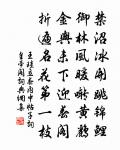 禁沼冰開跳錦鯉
御林風暖囀黃鸝
金輿未下迎春閣
折遍名花第一枝
王珪立春內中帖子詞
皇帝閣詞典網集